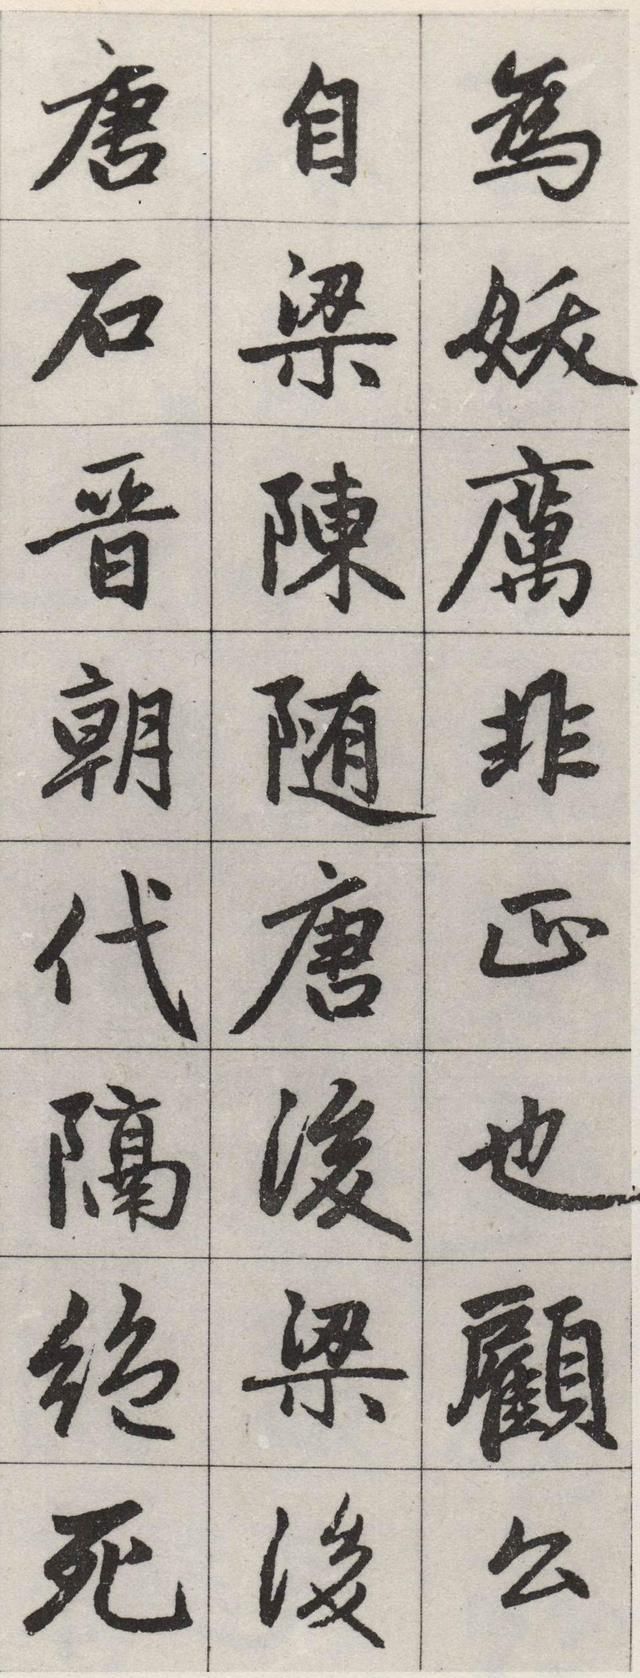 為妖厲非正也顧公
自梁陳随唐後梁後
唐石晋朝代隔絶死